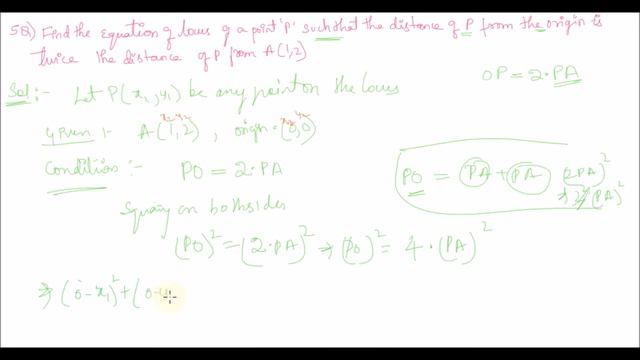 5Q) Find the Equation of locus of a point 'P' such that the distance of P from the origin is
twice the distance of P from A(1,2)
OP = 2·PA
Sol :- Let P(x₁,y₁) be any point on the locus
x₂ y₂ x₂ y₂
Given :- A(1,2), origin = (0,0)
Condition :- PO = 2·PA
PO = PA + PA (2PA)²
⇒ 2²(PA)²
Squaring on both sides
(PO)² = (2·PA)² ⇒ (PO)² = 4·(PA)²
⇒ (0-x₁)² + (0-